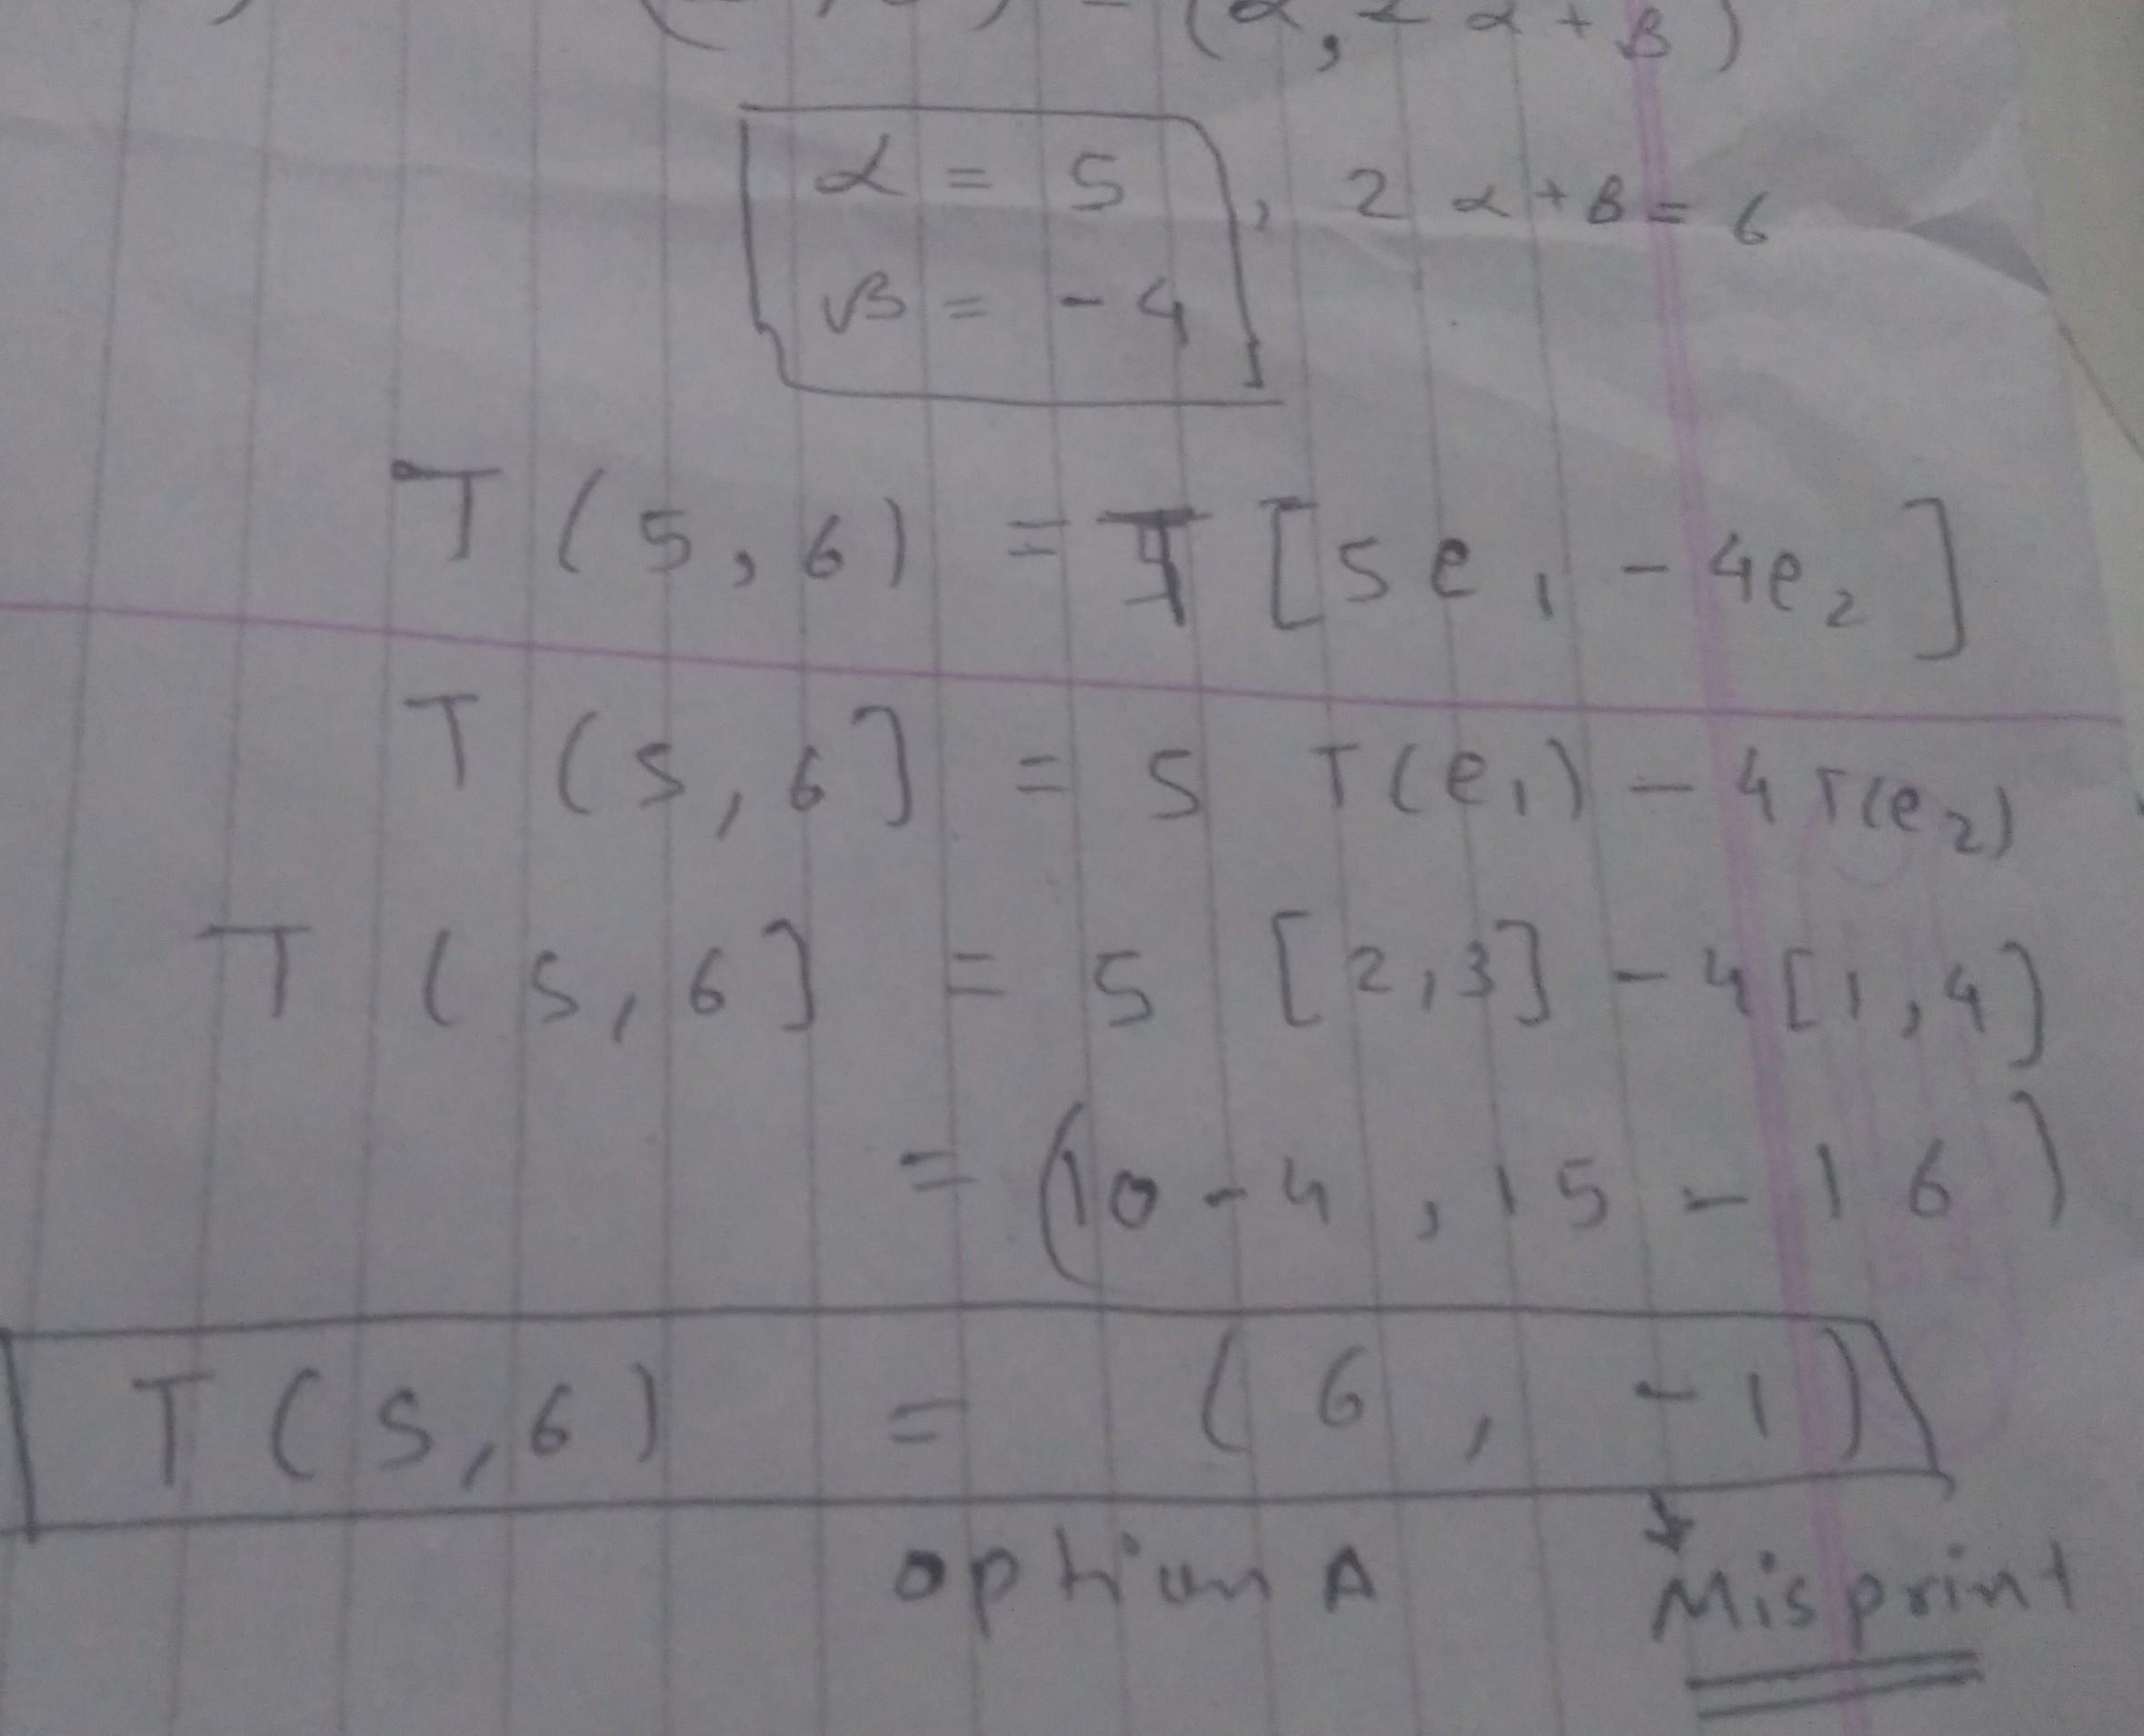 (α, 2α+β)
α = 5 , 2α+β = 6
β = -4
T(5,6) = T[5e₁ - 4e₂]
T(5,6] = 5 T(e₁) - 4T(e₂)
T(5,6] = 5 [2,3] - 4[1,4)
= (10-4, 15-16)
T(5,6) = (6, -1)
option A Misprint